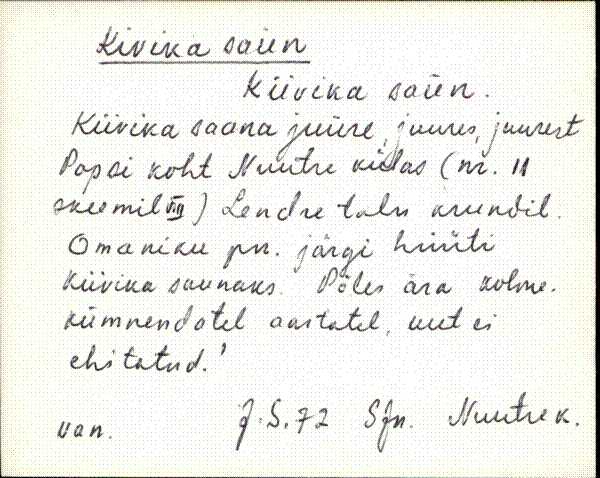 Kivika saün
Kiivika saün.
Kiivika saana juure, juures, juurest
Popsi koht Nuutre külas (nr. 11
skeemil VIII) Lendre talu krundil.
Omaniku pn. järgi hüüti
Kiivika saunaks. Põles ära kolme-
kümnendatel aastatel, uut ei
ehitatud.'
van. J.S.72 Sjn. Nuutre k.